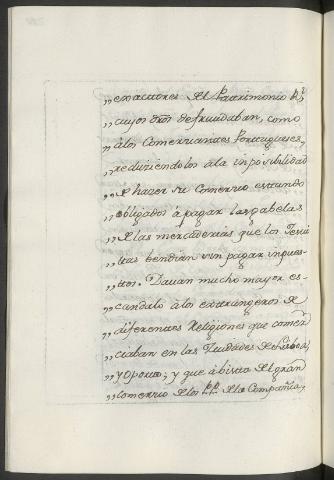 „exactores del Patrimonio Rl,
„cuyos dros defraudaban, como
„à los Comerciantes Portugueses,
„reduziendolos à la inposibilidad
„de hazer su Comercio estando
„obligados à pagar las gabelas
„de las mercaderias que los Jesui
„tas bendian sin pagar inpues-
„tos. Dauan mucho mayor es-
„candalo à los extrangeros de
„diferentes Religiones que comer
„ciaban en las Ciudades de Lisboa,
„y Oporto; y que à bista del gran
„comercio de los PP. de la Compañia,